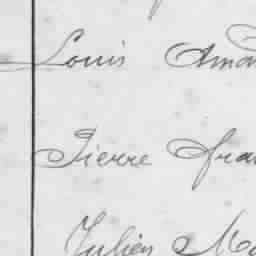 Louis Aman
Pierre Fran
Julien Ma